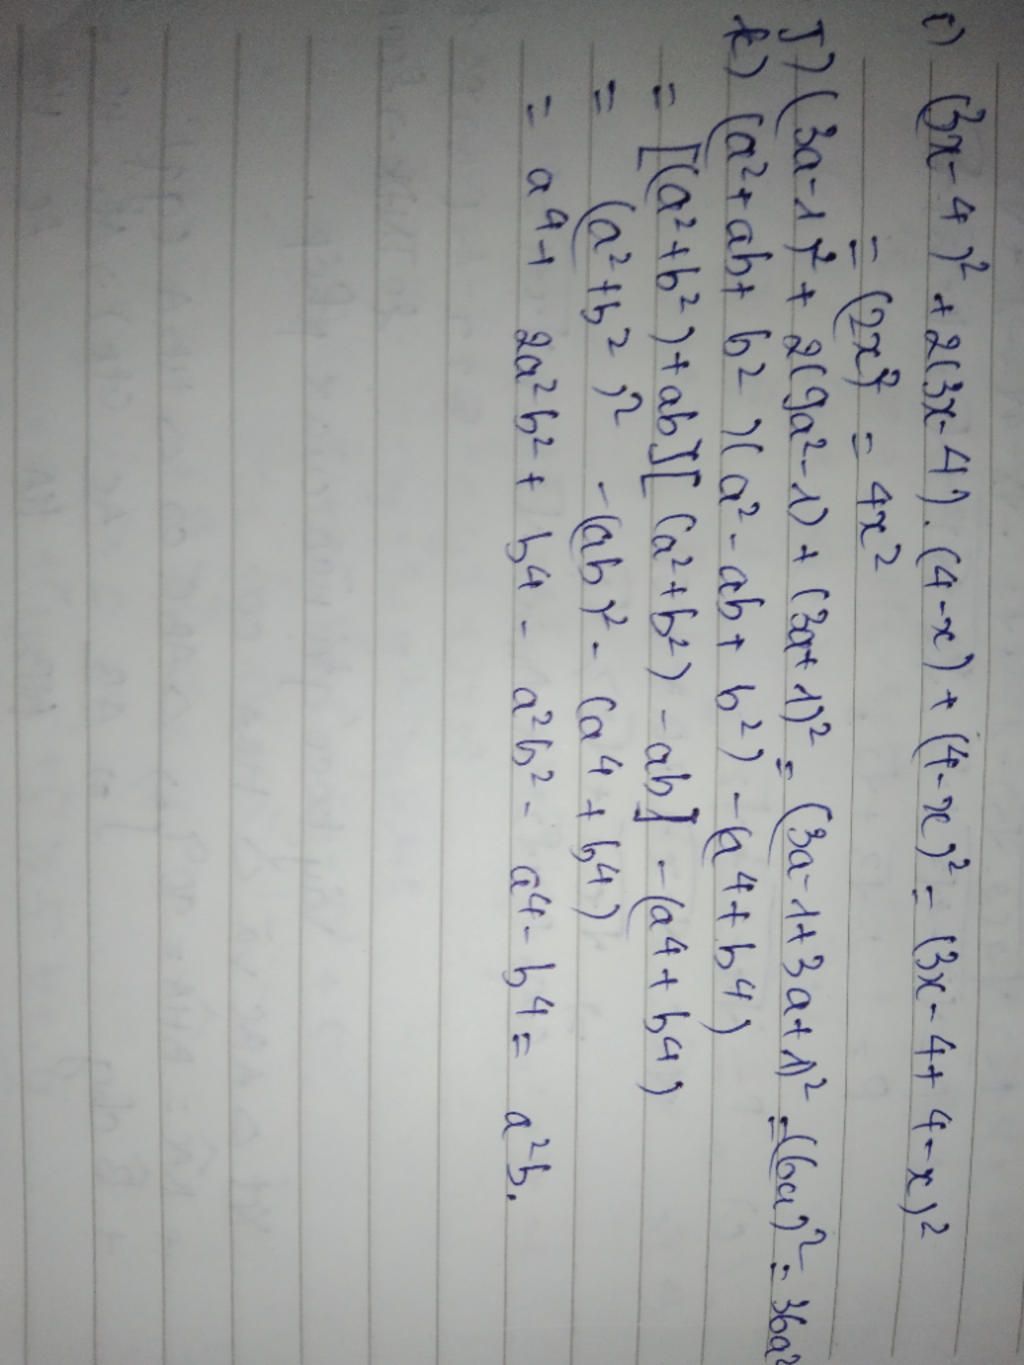 c) (3x-4)² + 2(3x-4).(4-x) + (4-x)² = (3x-4+4-x)²
= (2x)² = 4x²
J) (3a-1)² + 2(9a²-1) + (3a+1)² = (3a-1+3a+1)² = (6a)² = 36a²
k) (a²+ab+b²)(a²-ab+b²) - (a⁴+b⁴)
= [(a²+b²)+ab][(a²+b²)-ab] - (a⁴+b⁴)
= (a²+b²)² - (ab)² - (a⁴+b⁴)
= a⁴+ 2a²b² + b⁴ - a²b² - a⁴ - b⁴ = a²b.